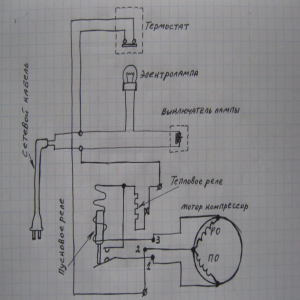 Термостат
Электролампа
Выключатель лампы
Сетевой кабель
Тепловое реле
Пусковое реле
мотор компрессор
3
2
1
РО
ПО